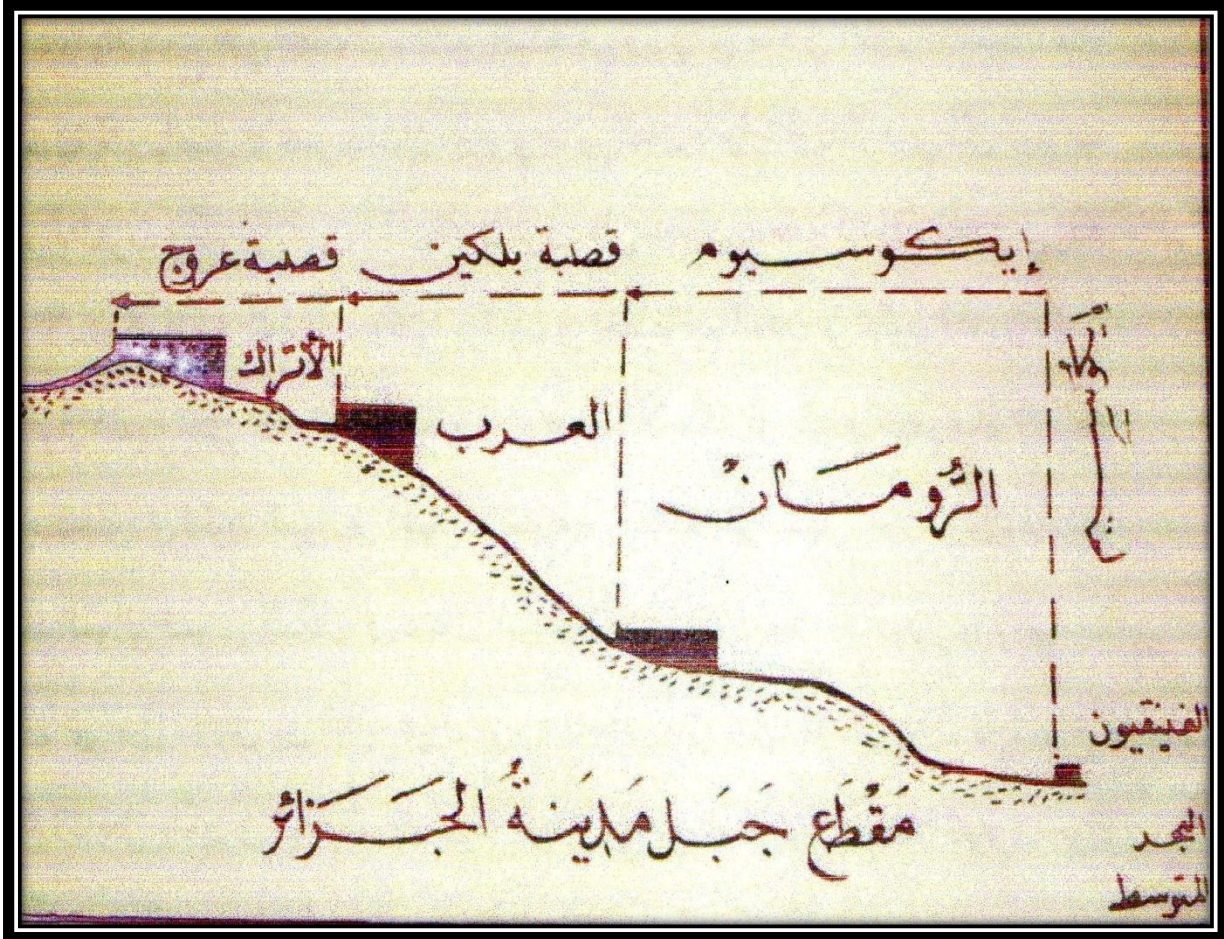 إيكوسيوم قصبة بلكين قصبة عروج
الأتراك
العرب
الرُّومَـان
الفينقيون
مَقْطَع جَبَل مَدِينَة الجَزائر
المتوسط